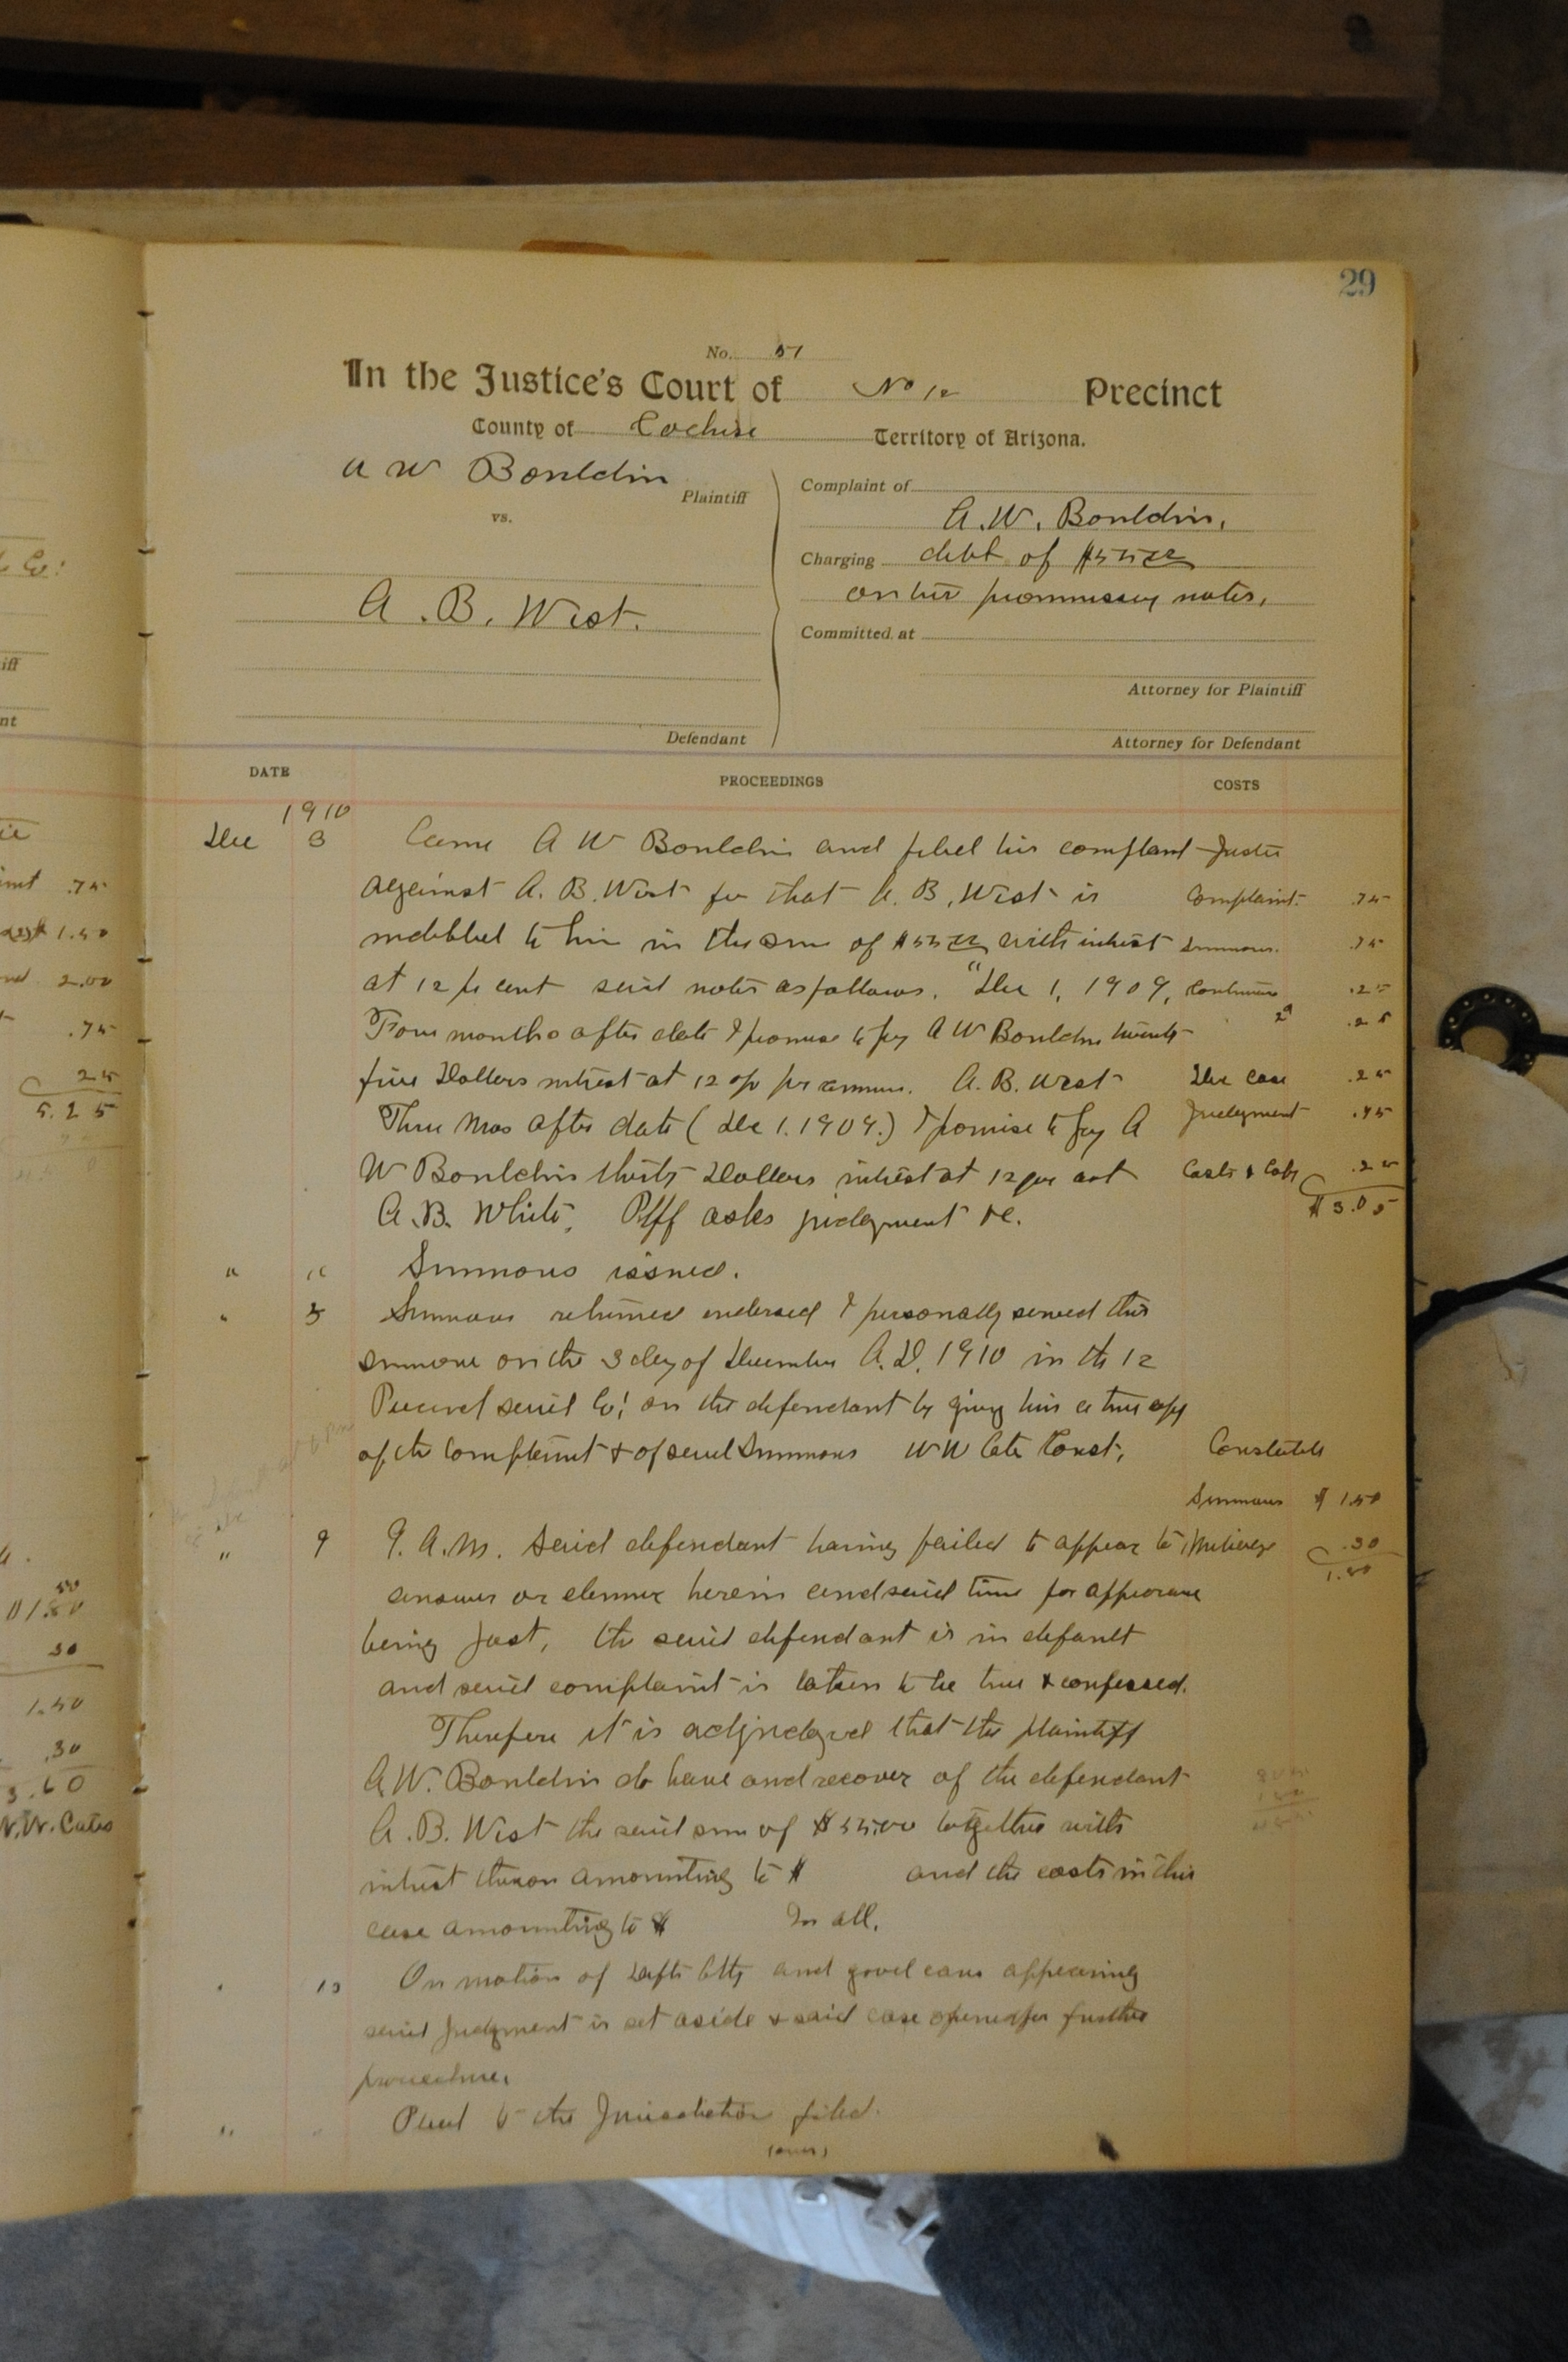 29
No. 57
In the Justice's Court of No 12 Precinct
County of Cochise Territory of Arizona.
A W Bouldin
Plaintiff
vs.
A. B. West.
Defendant
Complaint of
A. W. Bouldin,
Charging debt of $55 00
on his promissory notes,
Committed at
Attorney for Plaintiff
Attorney for Defendant
DATE PROCEEDINGS COSTS
1910
Dec 3 Came A W Bouldin and filed his complaint Justice
against A. B. West for that A. B. West is Complaint. .75
indebted to him in the sum of $55 00 with interest Summons. .75
at 12 per cent said notes as follows. "Dec 1, 1909, Continuance .25
Four months after date I promise to pay A W Bouldin twenty 2d .25
five Dollars interest at 12 % per annum. A. B. West .25
Three Mos after date (Dec 1. 1909.) I promise to pay A Judgment
W Bouldin thirty Dollars interest at 12 per cent .25
A. B. White, Plff asks judgment &c. $3.05
" " Summons issued.
" 5 Summons returned endorsed I personally served this
summons on the 3 day of December A.D. 1910 in the 12
Precinct said Co: on the defendant by giving him a true copy
of the complaint & of said Summons W W Cate Const. Constable
Summons $ 1.50
" 9 9. A.M. Said defendant having failed to appear to Mileage .30
answer or demur herein and said time for appearance
being past, the said defendant is in default
and said complaint is taken to be true & confessed.
Therefore it is adjudged that the plaintiff
A W. Bouldin do have and recover of the defendant
A. B. West the said sum of $55.00 together with
interest thereon amounting to $ and the costs in this
case amounting to $ In all.
" 10 On motion of Defts Atty and good cause appearing
said judgment is set aside & said case opened for further
procedure.
" " Plead to the Jurisdiction filed.
(over)
.75
1.50
2.00
.75
25
5.25
50
30
1.50
.30
3.60
W. W. Cates